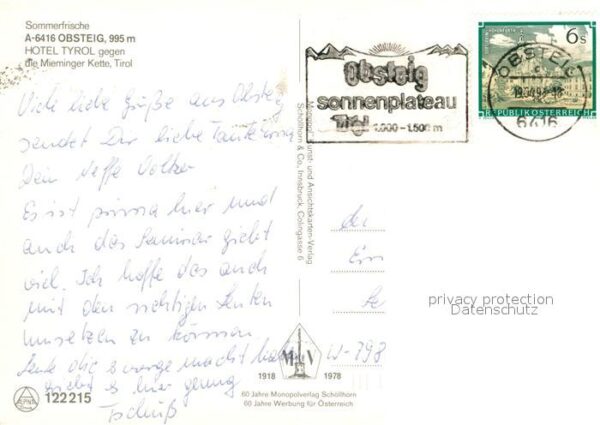 Sommerfrische
A-6416 OBSTEIG, 995 m
HOTEL TYROL gegen
die Mieminger Kette, Tirol
Viele liebe Grüße aus Obsteig
sendet Dir liebe Tante
Dein Neffe Volker
Es ist prima hier und
auch das Seminar gibt
viel. Ich hoffe das auch
mit den richtigen Leuten
umsetzen zu können
Leute die
gibt es hier genug
Tschüß
122215
Monopol, Kunst- und Ansichtskarten-Verlag
Schöllhorn & Co., Innsbruck, Colingasse 6
Obsteig
sonnenplateau
Tirol 1.000-1.500 m
6 s
REPUBLIK ÖSTERREICH
OBSTEIG
6416
An
W-798
privacy protection
Datenschutz
M V
1918 1978
60 Jahre Monopolverlag Schöllhorn
60 Jahre Werbung für Österreich